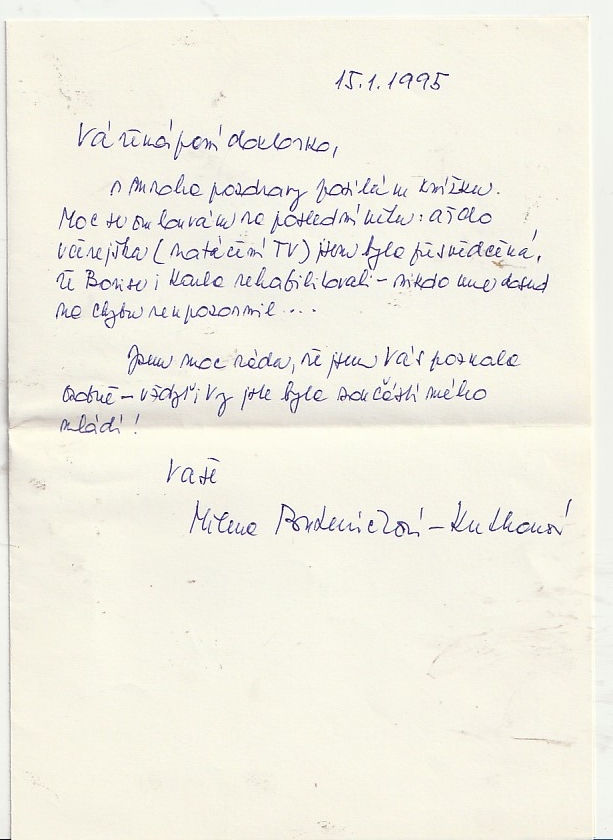 15.1.1995
Vážená paní doktorko,
s mnoha pozdravy posílám knížku.
Moc se omlouvám za poslední větu: až do
včerejška (natáčení TV) jsem byla přesvědčená,
že Borise i Karla rehabilitovali – nikdo mne dosud
na chybu neupozornil ...
Jsem moc ráda, že jsem Vás poznala
osobně – vždyť i Vy jste byla součástí mého
mládí!
Vaše
Milena